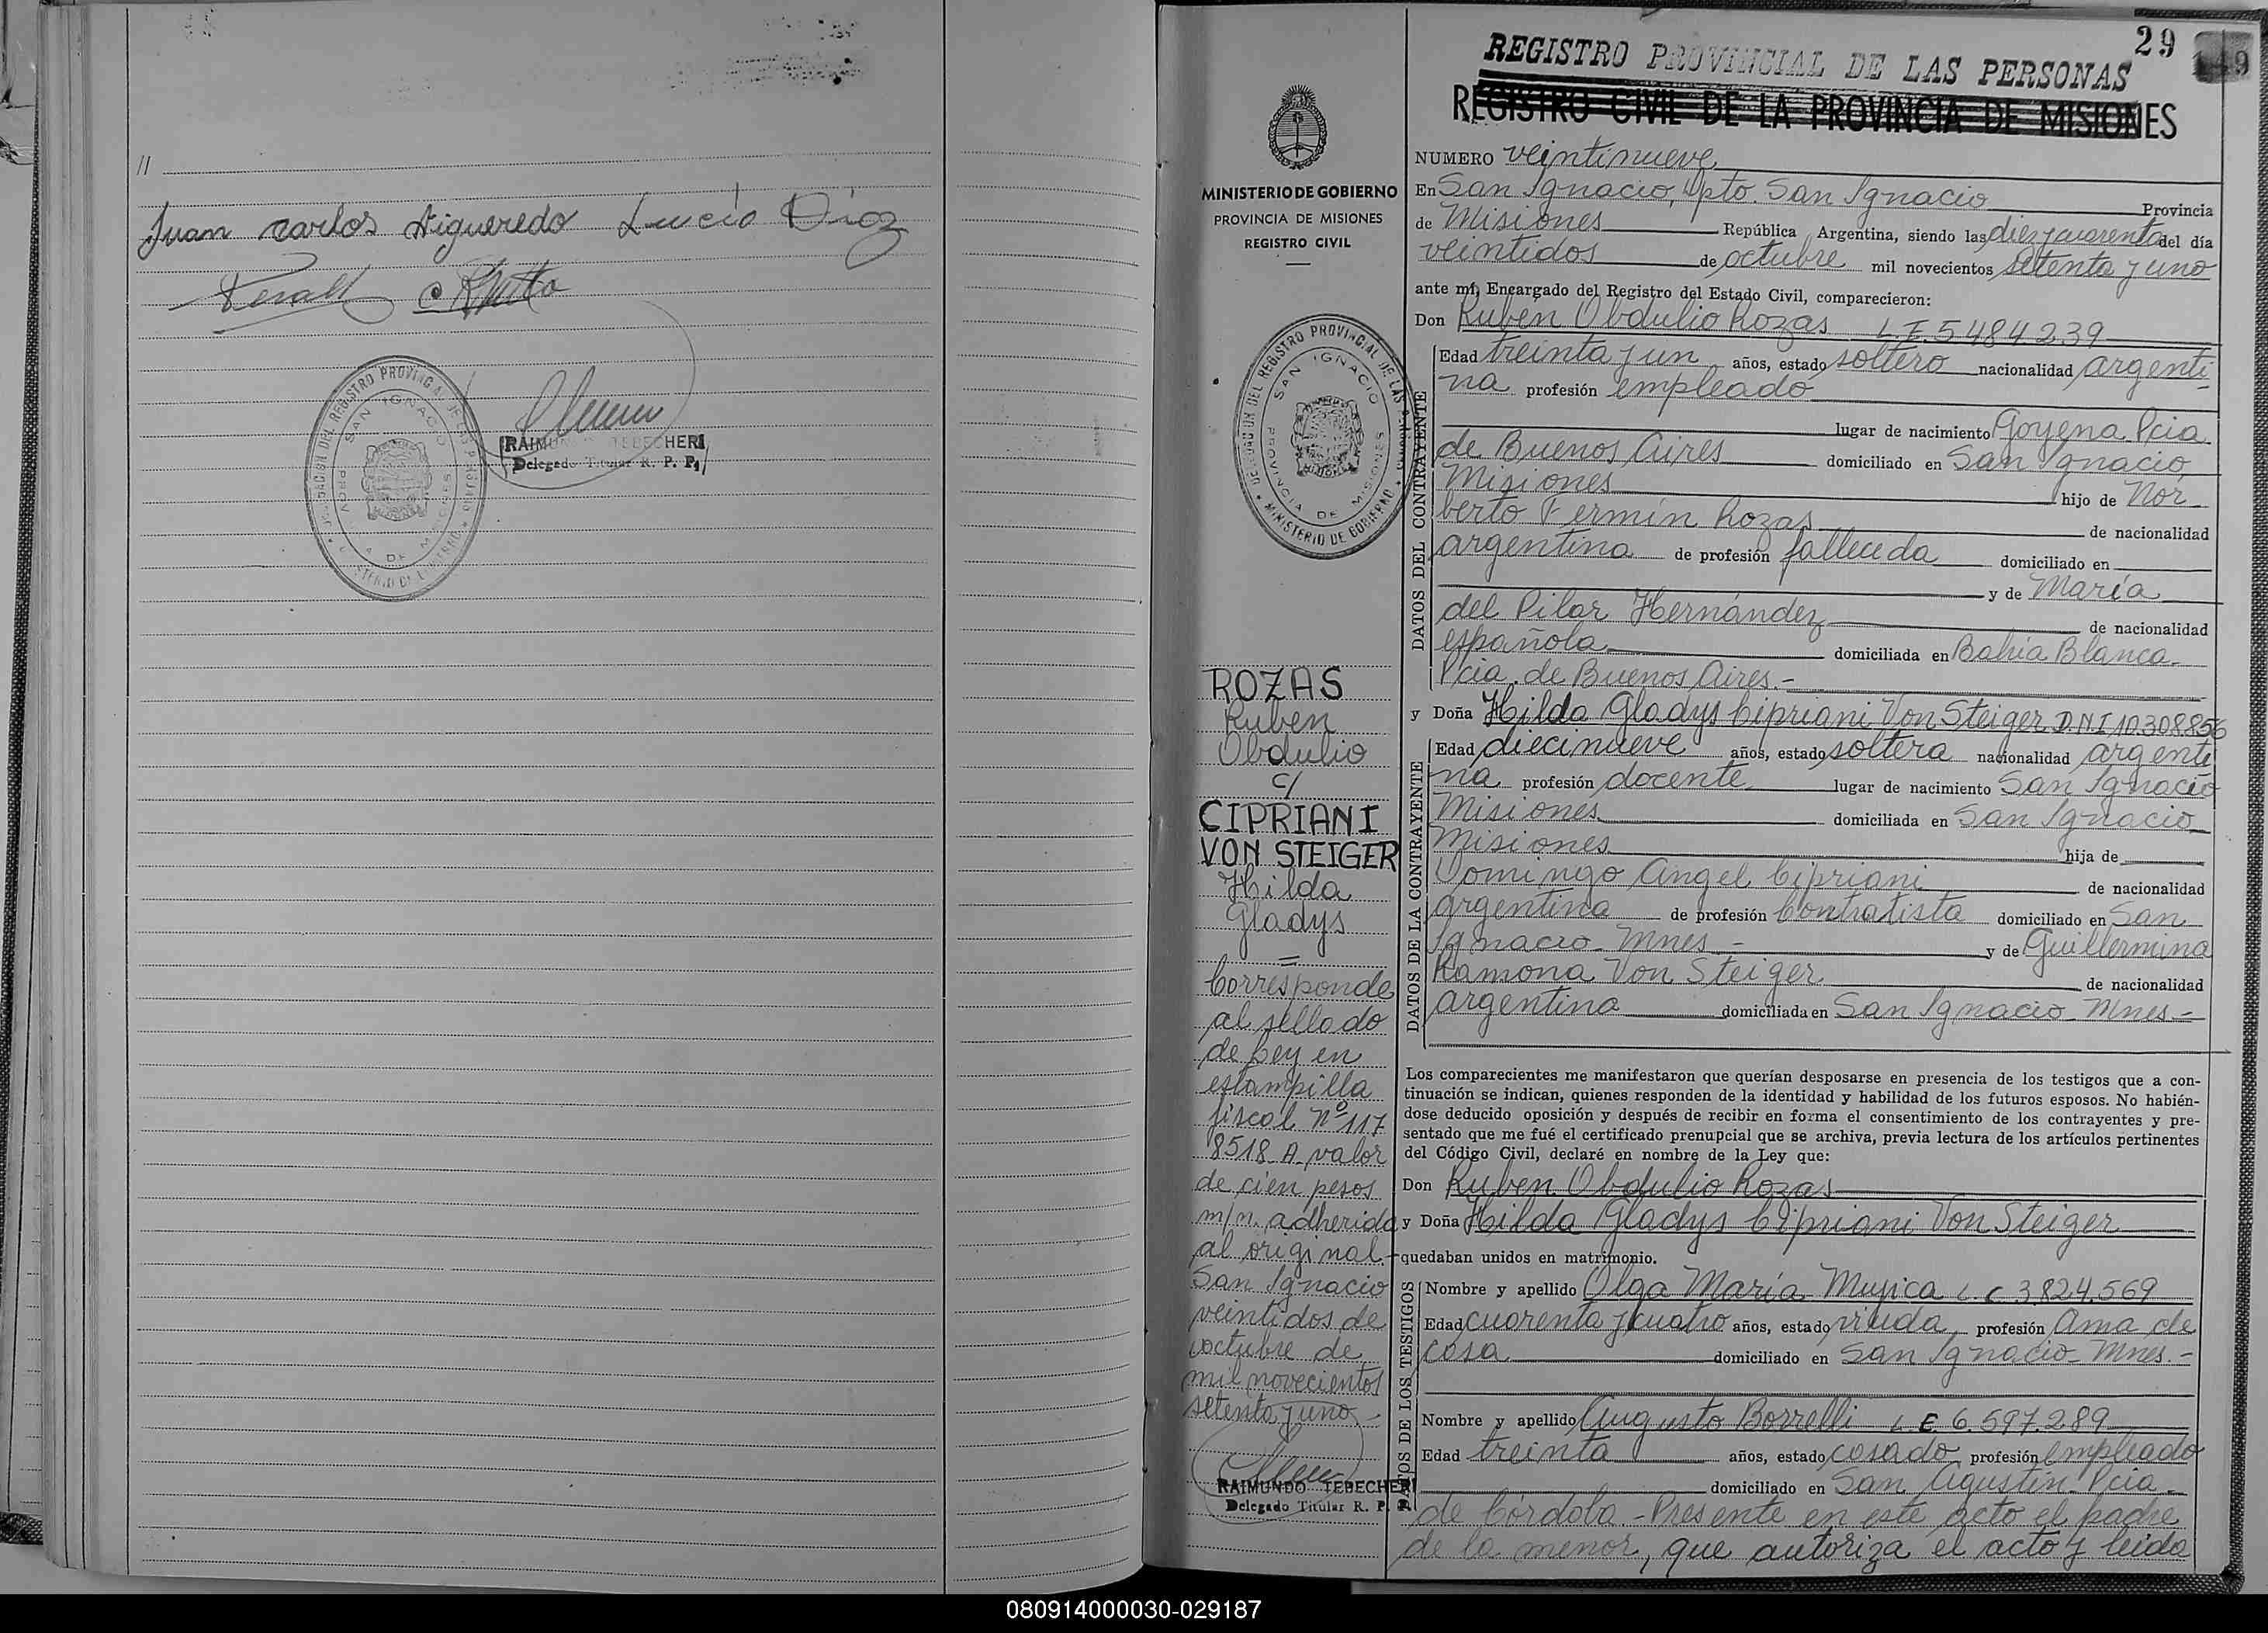 //
Juan Carlos Figueredo Lucía Díaz
PROVINCIA DE MISIONES
SAN IGNACIO
RAIMUNDO TEBECHERI
Delegado Titular R. P. P.
29
REGISTRO PROVINCIAL DE LAS PERSONAS
REGISTRO CIVIL DE LA PROVINCIA DE MISIONES
MINISTERIO DE GOBIERNO
PROVINCIA DE MISIONES
REGISTRO CIVIL
DELEGACION DEL REGISTRO PROVINCIAL DE LAS PERSONAS
SAN IGNACIO
PROVINCIA DE MISIONES
MINISTERIO DE GOBIERNO
ROZAS
Ruben
Obdulio
c/
CIPRIANI
VON STEIGER
Hilda
Gladys
=
Corresponde
al sellado
de Ley en
estampilla
fiscal Nº 117
8518 A valor
de cien pesos
m/n. adherida
al original.-
San Ignacio
veintidos de
octubre de
mil novecientos
setenta y uno.-
RAIMUNDO TEBECHERI
Delegado Titular R. P. P.
NUMERO veintinueve
En San Ignacio, Dpto. San Ignacio Provincia
de Misiones República Argentina, siendo las diez y cuarenta del día
veintidos de octubre mil novecientos setenta y uno
ante mí, Encargado del Registro del Estado Civil, comparecieron:
Don Rubén Obdulio Rozas L.E. 5484239
DATOS DEL CONTRAYENTE
Edad treinta y un años, estado soltero nacionalidad argenti-
na profesión empleado
lugar de nacimiento Goyena Pcia
de Buenos Aires domiciliado en San Ignacio
Misiones hijo de Nor
berto Fermín Rozas de nacionalidad
argentina de profesión fallecida domiciliado en
y de María
del Pilar Hernández de nacionalidad
española domiciliada en Bahía Blanca
Pcia. de Buenos Aires.-
y Doña Hilda Gladys Cipriani Von Steiger D.N.I 10.308.856
DATOS DE LA CONTRAYENTE
Edad diecinueve años, estado soltera nacionalidad argenti
na profesión docente lugar de nacimiento San Ignacio
Misiones domiciliada en San Ignacio
Misiones hija de
Domingo Angel Cipriani de nacionalidad
argentina de profesión Contratista domiciliado en San
Ignacio - Mnes - y de Guillermina
Ramona Von Steiger de nacionalidad
argentina domiciliada en San Ignacio - Mnes.-
Los comparecientes me manifestaron que querían desposarse en presencia de los testigos que a con-
tinuación se indican, quienes responden de la identidad y habilidad de los futuros esposos. No habién-
dose deducido oposición y después de recibir en forma el consentimiento de los contrayentes y pre-
sentado que me fué el certificado prenupcial que se archiva, previa lectura de los artículos pertinentes
del Código Civil, declaré en nombre de la Ley que:
Don Rubén Obdulio Rozas
y Doña Hilda Gladys Cipriani Von Steiger
quedaban unidos en matrimonio.
DATOS DE LOS TESTIGOS
Nombre y apellido Olga María Mujica L.C 3.824.569
Edad cuarenta y cuatro años, estado viuda profesión Ama de
casa domiciliado en San Ignacio - Mnes.-
Nombre y apellido Augusto Borrelli L.E 6.597.289
Edad treinta años, estado casado profesión empleado
domiciliado en San Agustín - Pcia
de Córdoba - Presente en este acto el padre
de la menor, que autoriza el acto y leida
080914000030-029187